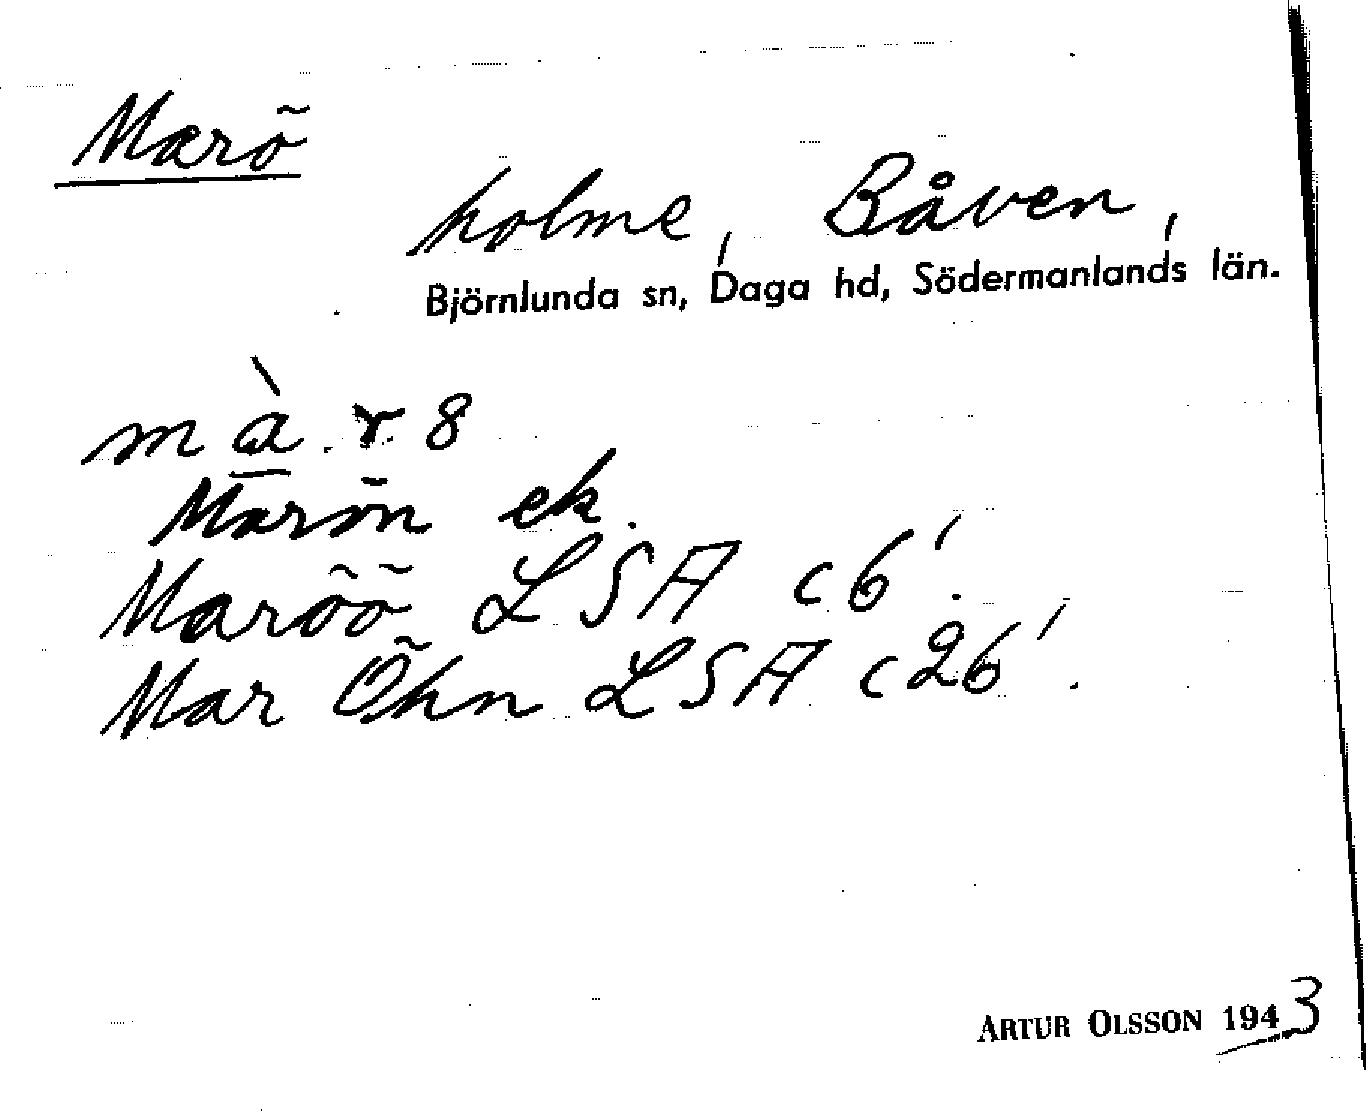 Marö
holme, Båven,
Björnlunda sn, Daga hd, Södermanlands län.
mà.r.8
Marön ek.
Maröö LSA c6'.
Mar Öhn LSA c26'.
ARTUR OLSSON 1943